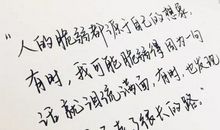 "人的脆弱都源于自己的想象
有时,我可能脆弱得因为一句
话就泪流满面,有时,也发现
走了很长的路。